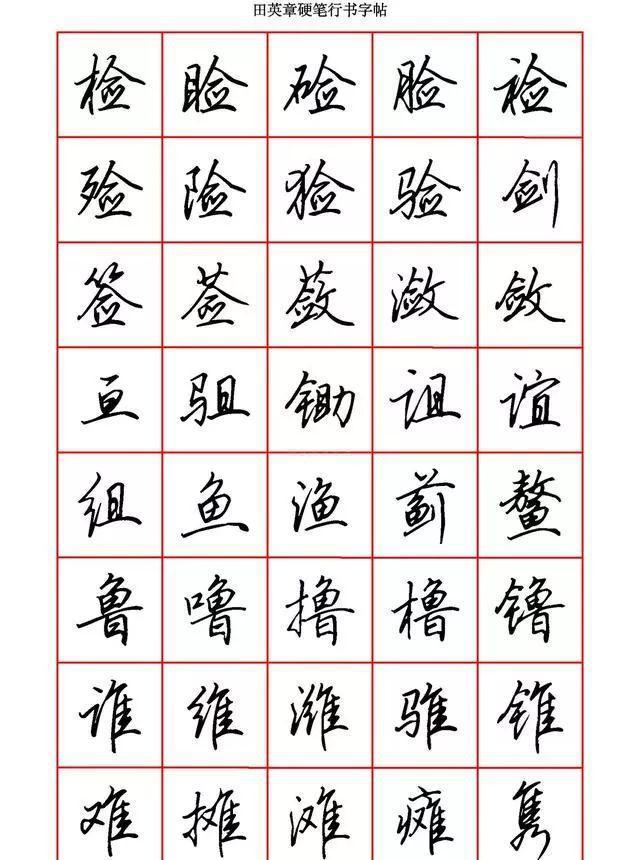 田英章硬笔行书字帖
检 睑 硷 脸 裣
殓 险 猃 验 剑
签 莶 蔹 潋 敛
亘 驵 锄 诅 谊
组 鱼 渔 蓟 鳌
鲁 噜 撸 橹 镥
谁 维 潍 骓 锥
难 摊 滩 瘫 隽